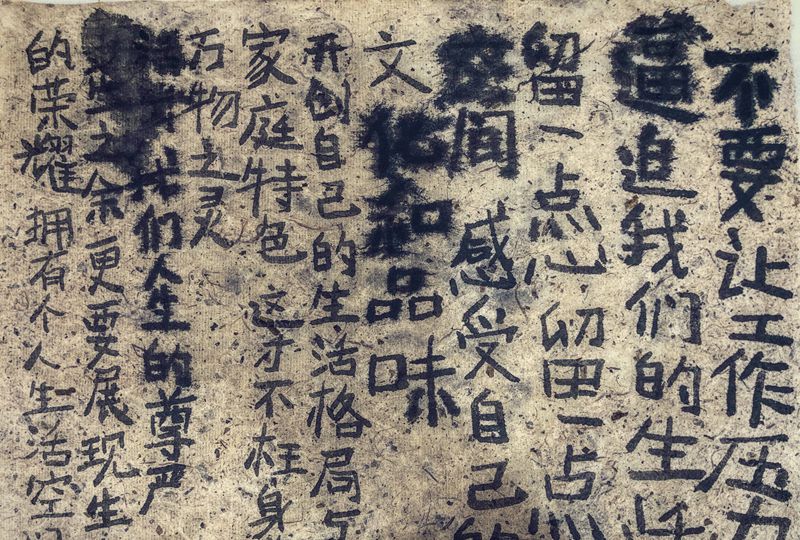 不要让工作压力
逼迫我们的生活
留一点心留一点
空间感受自己的
文化和品味
开创自己的生活格局与
家庭特色这才不枉身
万物之灵
我们人生的尊严
之余更要展现生
的荣耀拥有个人生活空间